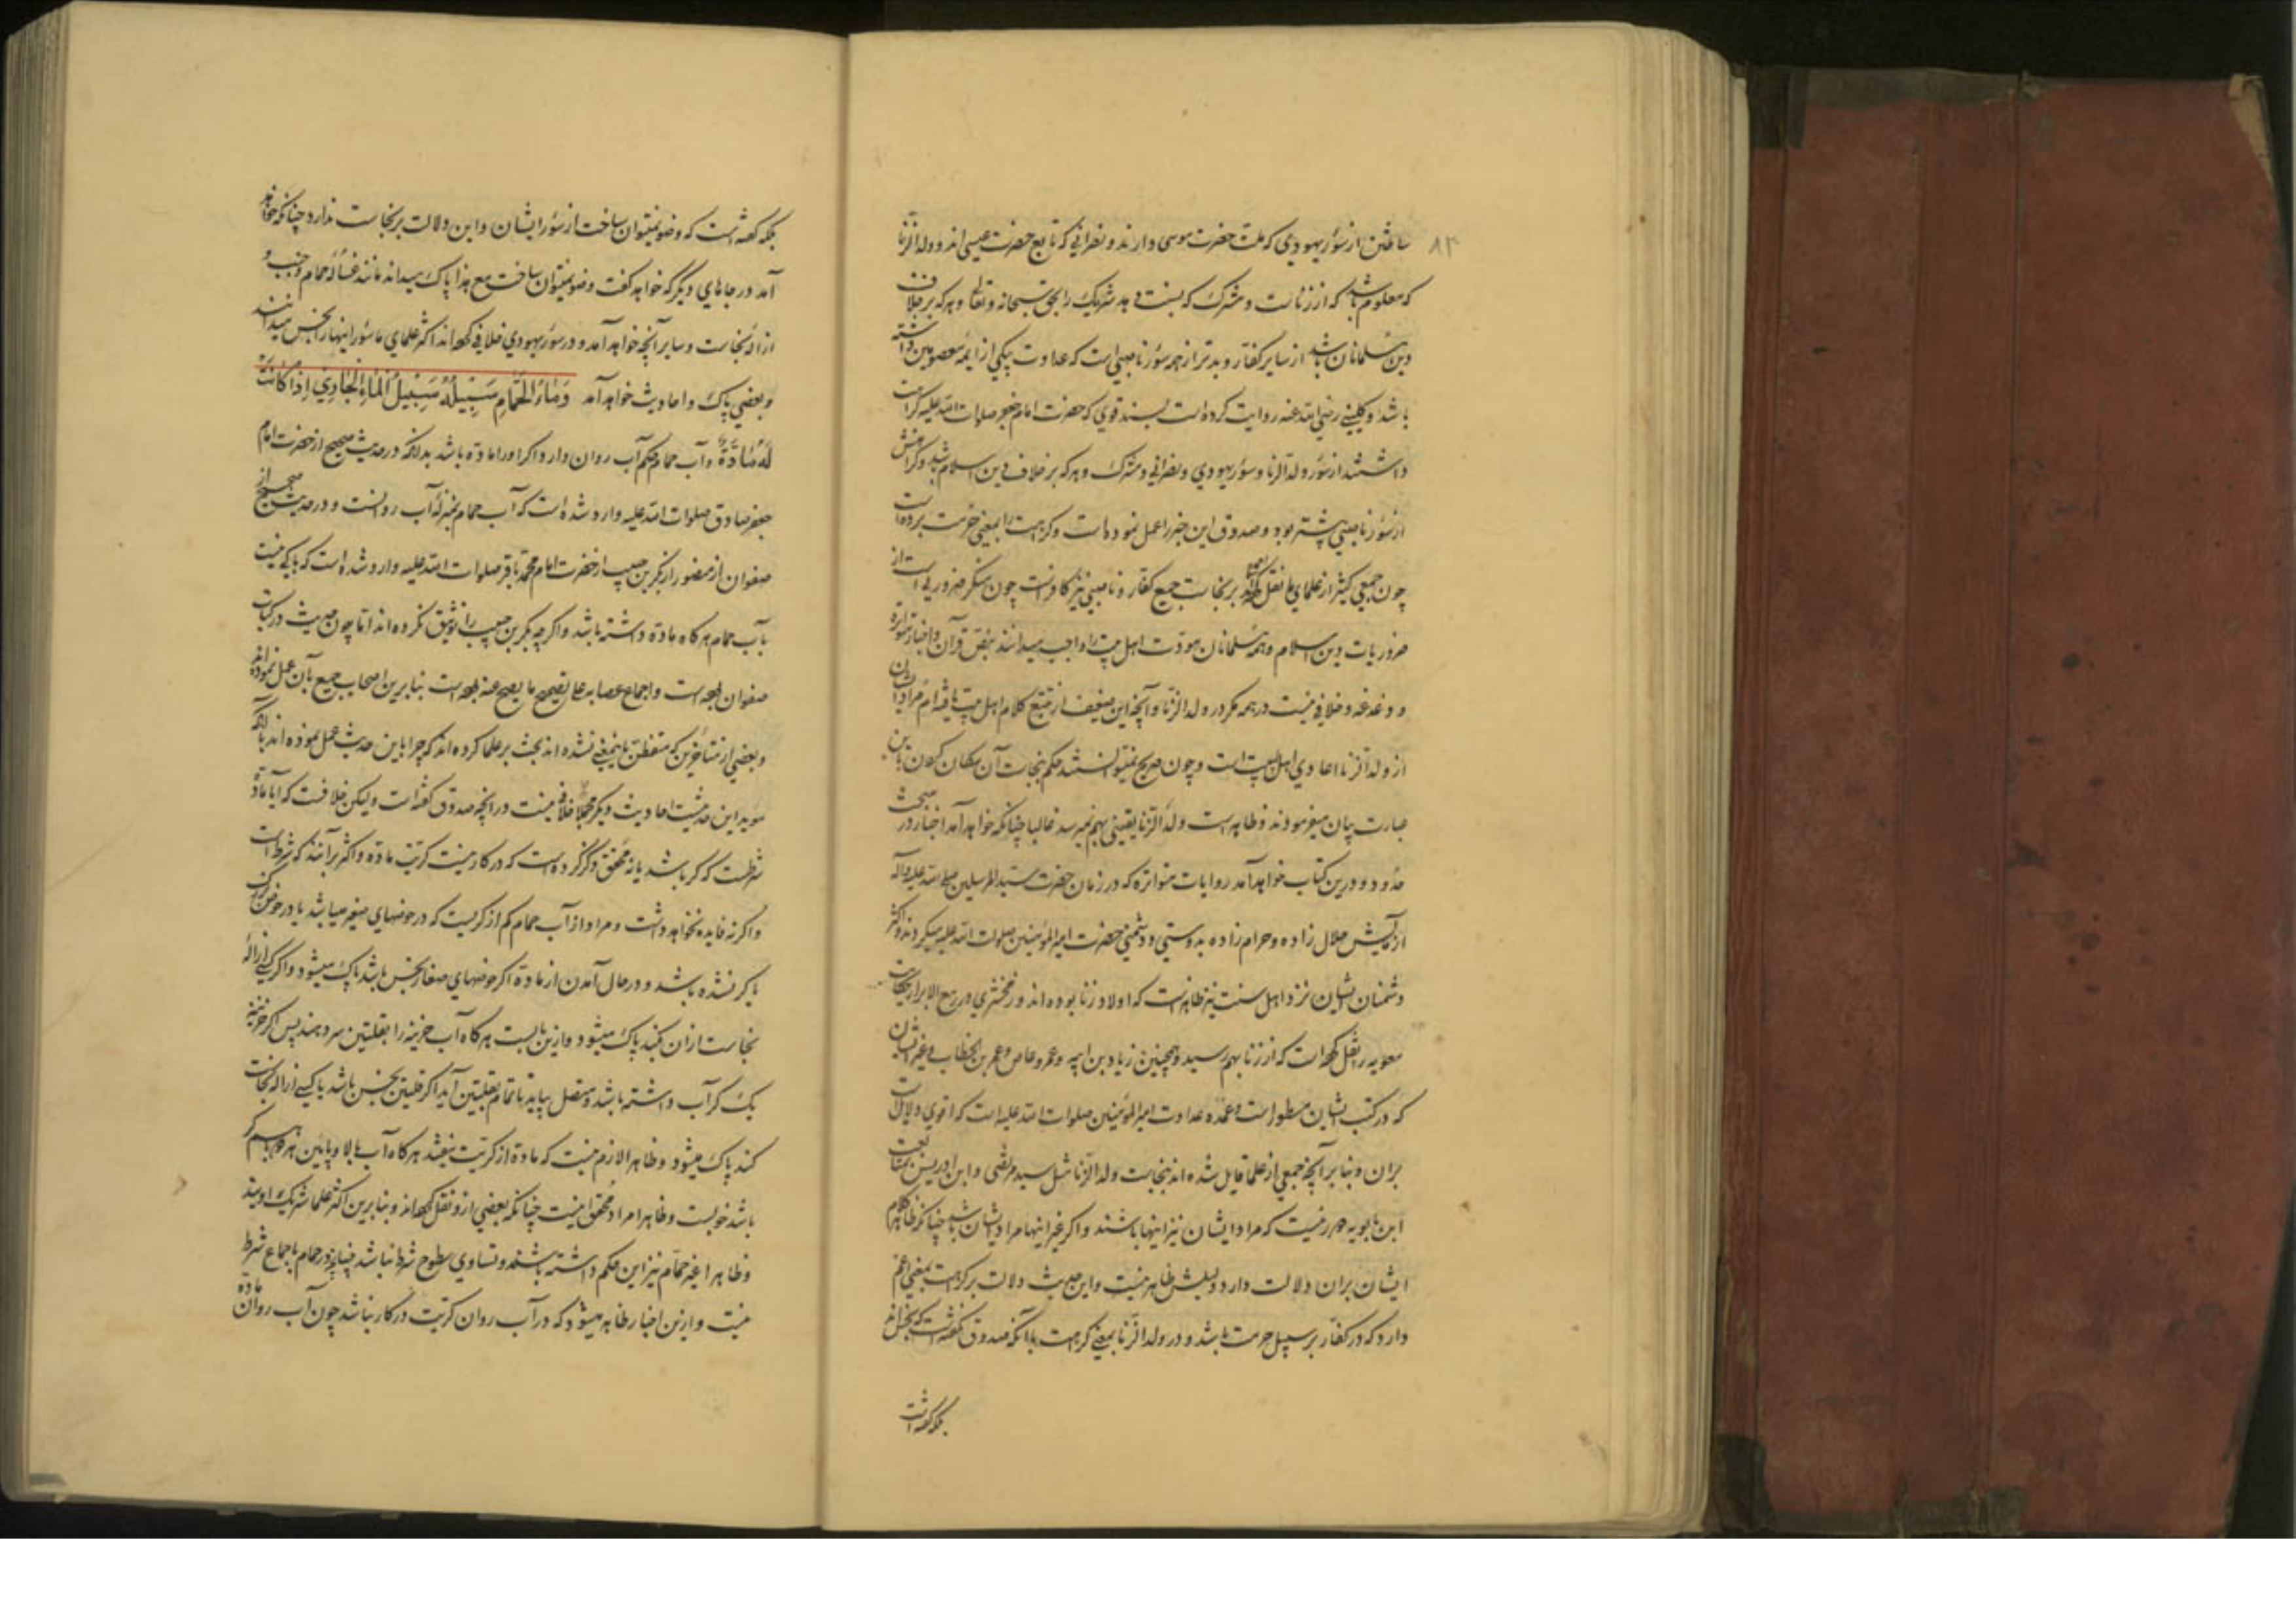 ۸۳
ساختن از سؤر یهودی که ملت حضرت موسی دارند و نصرانی که تابع حضرت عیسی اند و ولد الزنا
که معلوم باشد که از زناست و مشرک که نسبت دهد شریک را بحق سبحانه و تعالی و هر که بر خلاف
دین مسلمانان باشد از سایر کفار و بدتر از همه سؤر ناصبی است که عداوت یکی از ایمه معصومین داشته
باشد و کلینی رضی الله عنه روایت کرده است بسند قوی که حضرت امام جعفر صلوات الله علیه کراهت
داشتند از سؤر ولد الزنا و سؤر یهودی و نصرانی و مشرک و هر که بر خلاف دین اسلام باشد و کراهتش
از سؤر ناصبی بیشتر بود و صدوق این خبر را عمل نموده است و کراهت را بمعنی حرمت برده است
چون جمعی کثیر از علمای ما نقل کرده اند بر نجاست جمیع کفار و ناصبی نیز کافرست چون منکر ضروری است از
ضروریات دین اسلام و همه مسلمانان مودت اهل بیت را واجب میدانند بنص قرآن و اخبار متواتره
و دغدغه و خلافی نیست در همه مگر در ولد الزنا و آنچه این ضعیف از تتبع کلام اهل بیت یافته ام مراد ایشان
از ولد الزنا اعادی اهل بیت است و چون صریح نمیتوانستند حکم بنجاست آن سگان کردن باین
عبارت بیان میفرمودند و ظاهرست ولد الزنا یقینی بهم نمیرسد غالبا چنانکه خواهد آمد اخبار در مبحث
حدود و درین کتاب خواهد آمد روایات متواتره که در زمان حضرت سید المرسلین صلی الله علیه وآله
آزمایش حلال زاده و حرام زاده بدوستی و دشمنی حضرت امیر المؤمنین صلوات الله علیه میکردند و اکثر
دشمنان ایشان نزد اهل سنت نیز ظاهرست که اولاد زنا بوده اند و زمخشری در ربیع الابرار حکایت
معویه را نقل کرده است که از زنا بهم رسید و همچنین زیاد بن ابیه و عمرو عاص و عمر بن الخطاب و غیر ایشان
که در کتب ایشان مسطور است و عمده عداوت امیر المؤمنین صلوات الله علیه است که اقوی دلالت
بران و بنا بر آنچه جمعی از علما قایل شده اند بنجاست ولد الزنا مثل سید مرتضی و ابن ادریس بمتابعت
ابن بابویه دور نیست که مراد ایشان نیز اینها باشند و اگر غیر اینها مراد ایشان باشد چنانکه ظاهر کلام
ایشان بران دلالت دارد دلیلش ظاهر نیست و این حدیث دلالت بر کراهت بمعنی اعم
دارد که در کفار بر سبیل حرمت باشد و در ولد الزنا بمعنی کراهت با آنکه صدوق نگفته است که نجس اند
بلکه گفته است
بلکه گفته است که وضو نمیتوان ساخت از سؤر ایشان و این دلالت بر نجاست ندارد چنانکه خواهد
آمد در جاهای دیگر که خواهد گفت وضو نمیتوان ساخت مع هذا پاک میداند مانند غساله حمام و جنب و
ازاله نجاست و سایر آنچه خواهد آمد و در سؤر یهودی خلافی کرده اند اکثر علمای ما سؤر اینها را نجس میدانند
و بعضی پاک و احادیث خواهد آمد وَمَاءُ الْحَمَّامِ سَبِيلُهُ سَبِيلُ الْمَاءِ الْجَارِي إِذَا كَانَتْ
لَهُ مَادَّةٌ و آب حمام حکم آب روان دارد اگر او را ماده باشد بدانکه در حدیث صحیح از حضرت امام
جعفر صادق صلوات الله علیه وارد شده است که آب حمام بمنزله آب روانست و در حدیث صحیح از
صفوان از منصور از بکر بن حبیب از حضرت امام محمد باقر صلوات الله علیه وارد شده است که باکی نیست
بآب حمام هرگاه ماده داشته باشد و اگر چه بکر بن حبیب را توثیق نکرده اند اما چون حدیث در کتاب
صفوان بوده است و اجماع عصابه علی تصحیح ما یصح عنه بوده است بنا برین اصحاب جمیع بآن عمل نموده اند
و بعضی از متأخرین که متفطن باینمعنی نشده اند بحث بر علما کرده اند که چرا باین حدیث عمل نموده اند با آنکه
مؤید این حدیثست احادیث دیگر مجملا خلافی نیست در آنچه صدوق گفته است و لیکن خلافست که آیا ماده
شرطست که کر باشد یا نه محقق ذکر کرده است که در کار نیست کریت ماده و اکثر برآنند که شرط است
و اگر نه فایده نخواهد داشت و مراد از آب حمام کم از کریست که در حوضهای صغیر میباشد یا در حوض بزرگ
با کر نشده باشد و در حال آمدن از ماده اگر حوضهای صغار نجس باشد پاک میشود و اگر کسی ازاله
نجاست ازان کند پاک میشود و ازین بابست هرگاه آب خزینه را بقلتین سر دهند پس اگر خزینه
یک کر آب داشته باشد و متصل بیاید تا تمام بقلتین آید اگر قلتین نجس باشد یا کسی ازاله نجاست
کند پاک میشود و ظاهرا لازم نیست که ماده از کریت نیفتد هرگاه آب بالا و پایین هر دو با هم کر
باشد خوبست و ظاهرا مراد محقق اینست چنانکه بعضی ازو نقل کرده اند و بنا برین اکثر علما شریک اویند
و ظاهرا غیر حمام نیز این حکم داشته باشند و تساوی سطوح شرط نباشد چنانچه در حمام باجماع شرط
نیست و ازین اخبار ظاهر میشود که در آب روان کریت در کار نباشد چون آب روان ماده